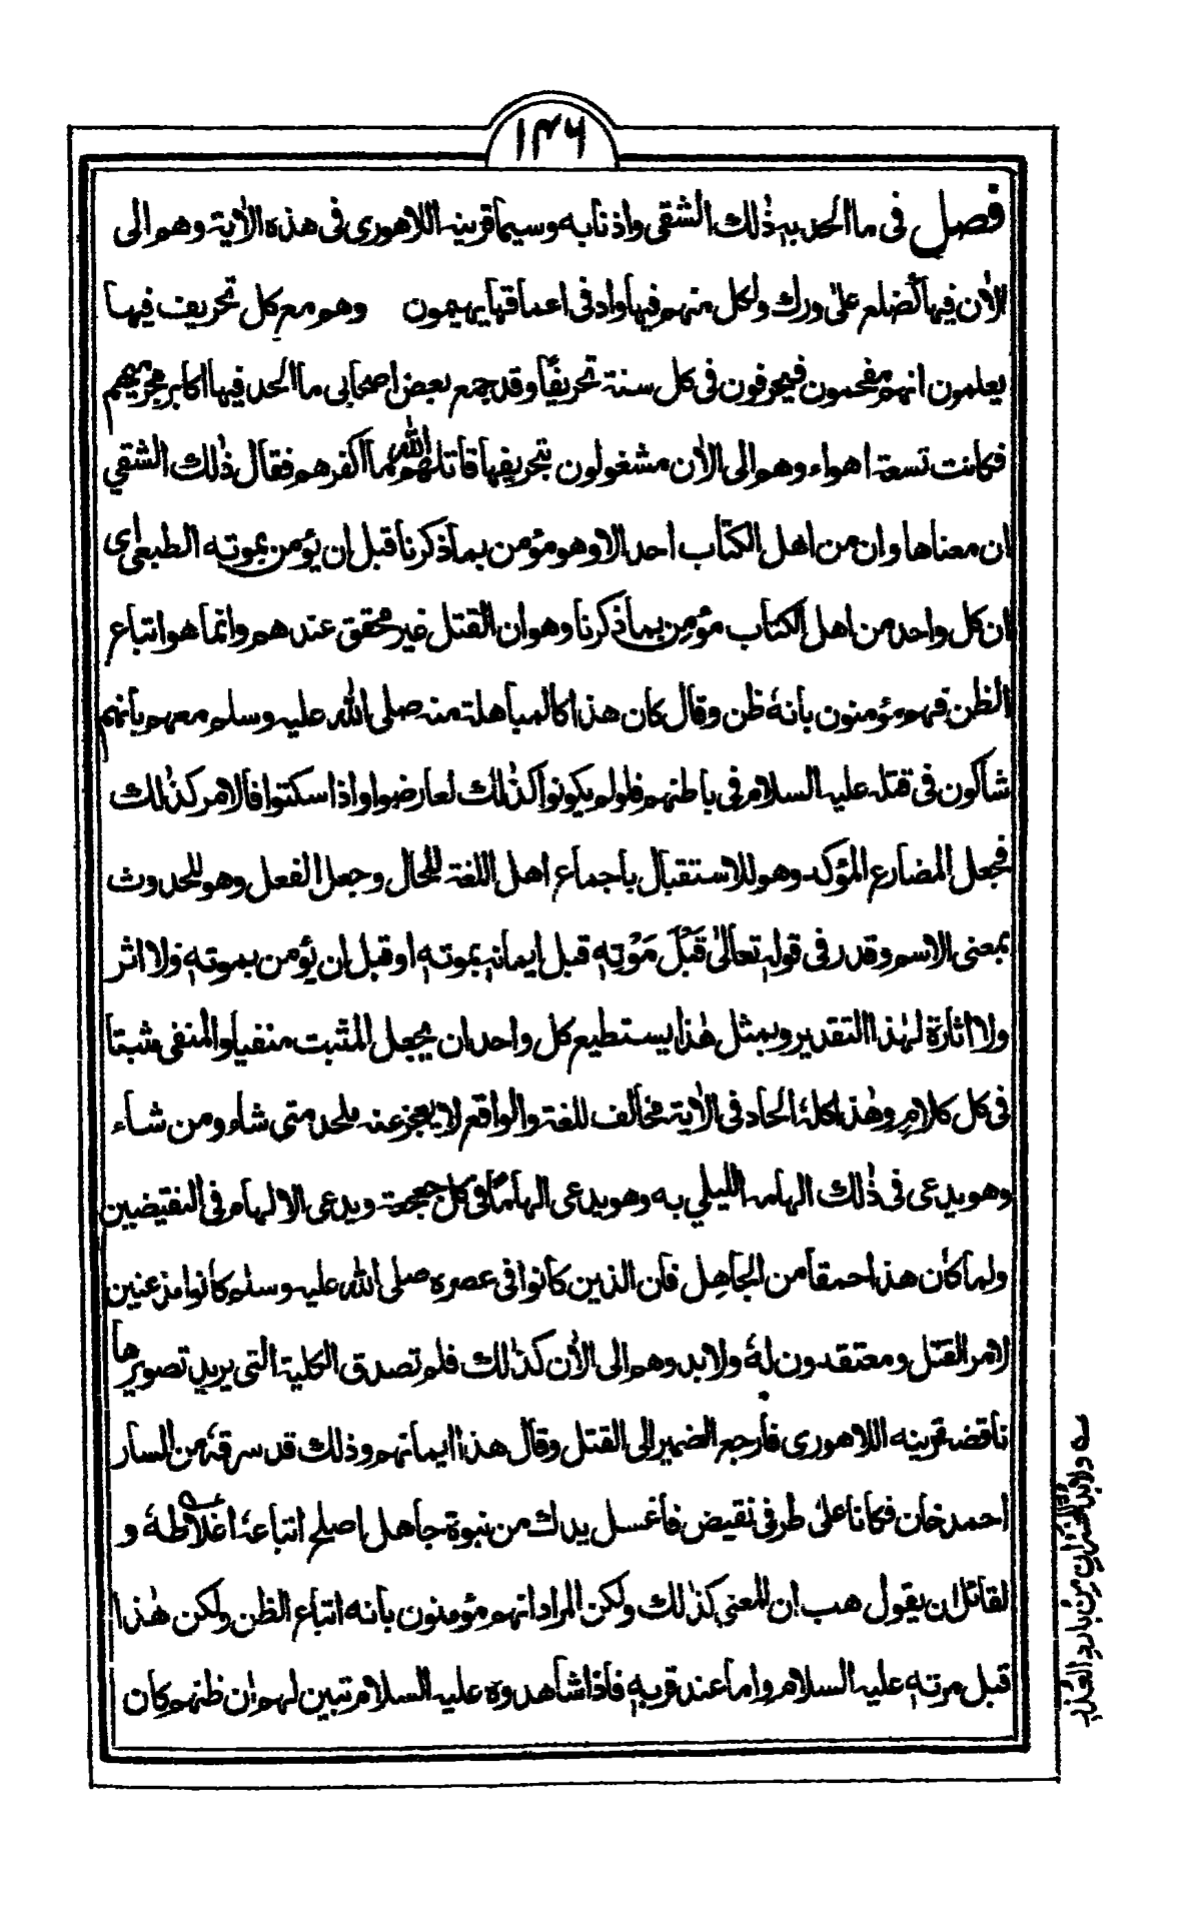 ۱۴۶
فصل فی ما الحد بہ ذٰلك الشقی واذنابه وسیما قرینہ اللاهوری فی هذہ الاٰیة وهم الی
الاٰن فیها کضلع علیٰ ورك ولکل منهم فیها واد فی اعماقها یهیمون وهم مع کل تحریف فیها
یعلمون انهم مفحمون فیحرفون فی کل سنة تحریفًا وقد جمع بعض اصحابی ما الحد فیها اکابر مجرمیهم
فکانت تسعة اهواء وهم الی الاٰن مشغولون بتحریفها قاتلهم اللّٰه ما اکفرهم فقال ذٰلك الشقی
ان معناها وان من اهل الکتاب احد الا وهو مؤمن بما ذکرنا قبل ان یؤمن بموته الطبعی ای
ان کل واحد من اهل الکتاب مؤمن بما ذکرنا وهو ان القتل غیر محقق عندهم وانما هو اتباع
الظن فهم مؤمنون بانهٗ ظن وقال کان هذا کالمباهلة منه صلی اللّٰه علیہ وسلم معهم بانهم
شاکون فی قتله علیہ السلام فی باطنهم فلولم یکونوا کذٰلك لعارضوا واذا سکتوا فالامر کذٰلك
فجعل المضارع المؤکد وهو للاستقبال باجماع اهل اللغة للحال وجعل الفعل وهو للحدوث
بمعنی الاسم وقدر فی قولہٖ تعالیٰ قَبْلَ مَوْتِهٖ قبل ایمانہٖ بموتهٖ او قبل ان یؤمن بموتهٖ ولا اثر
ولا اثارة لهٰذا التقدیر وبمثل هٰذا یستطیع کل واحد ان یجعل المثبت منفیا والمنفی مثبتا
فی کل کلام وهٰذا کلهٗ الحاد فی الاٰیة مخالف للغة والواقع لا یعجز عنه ملحد متی شاء ومن شاء
وهو یدعی فی ذٰلك الهامہ اللیلي به وهو یدعی الهامًا فی کل جعجعة ویدعی الالهام فی النقیضین
ولما کان هذا احمقا من الجاهل فان الذین کانوا فی عصرہ صلی اللّٰه علیہ وسلم کانوا مذعنین
لامر القتل ومعتقدون لهٗ ولابد وهم الی الاٰن کذٰلك فلم تصدق الکلیة التی یرید تصویرها
ناقضہ قرینه اللاهوری فارجع الضمیر الی القتل وقال هذا ایمانهم وذلك قد سرقهٗ من السار
احمد خان فکانا علیٰ طرفی نقیض فاغسل یدك من نبوة جاهل اصلح اتباعهٗ اغلاطهٗ و
لقائل ان یقول هب ان المعنی کذٰلك ولکن المراد انهم مؤمنون بانه اتباع الظن ولکن هٰذا
قبل موتهٖ علیہ السلام واما عند قربهٖ فاذا شاهدوہ علیہ السلام تبین لهم ان ظنهم کان